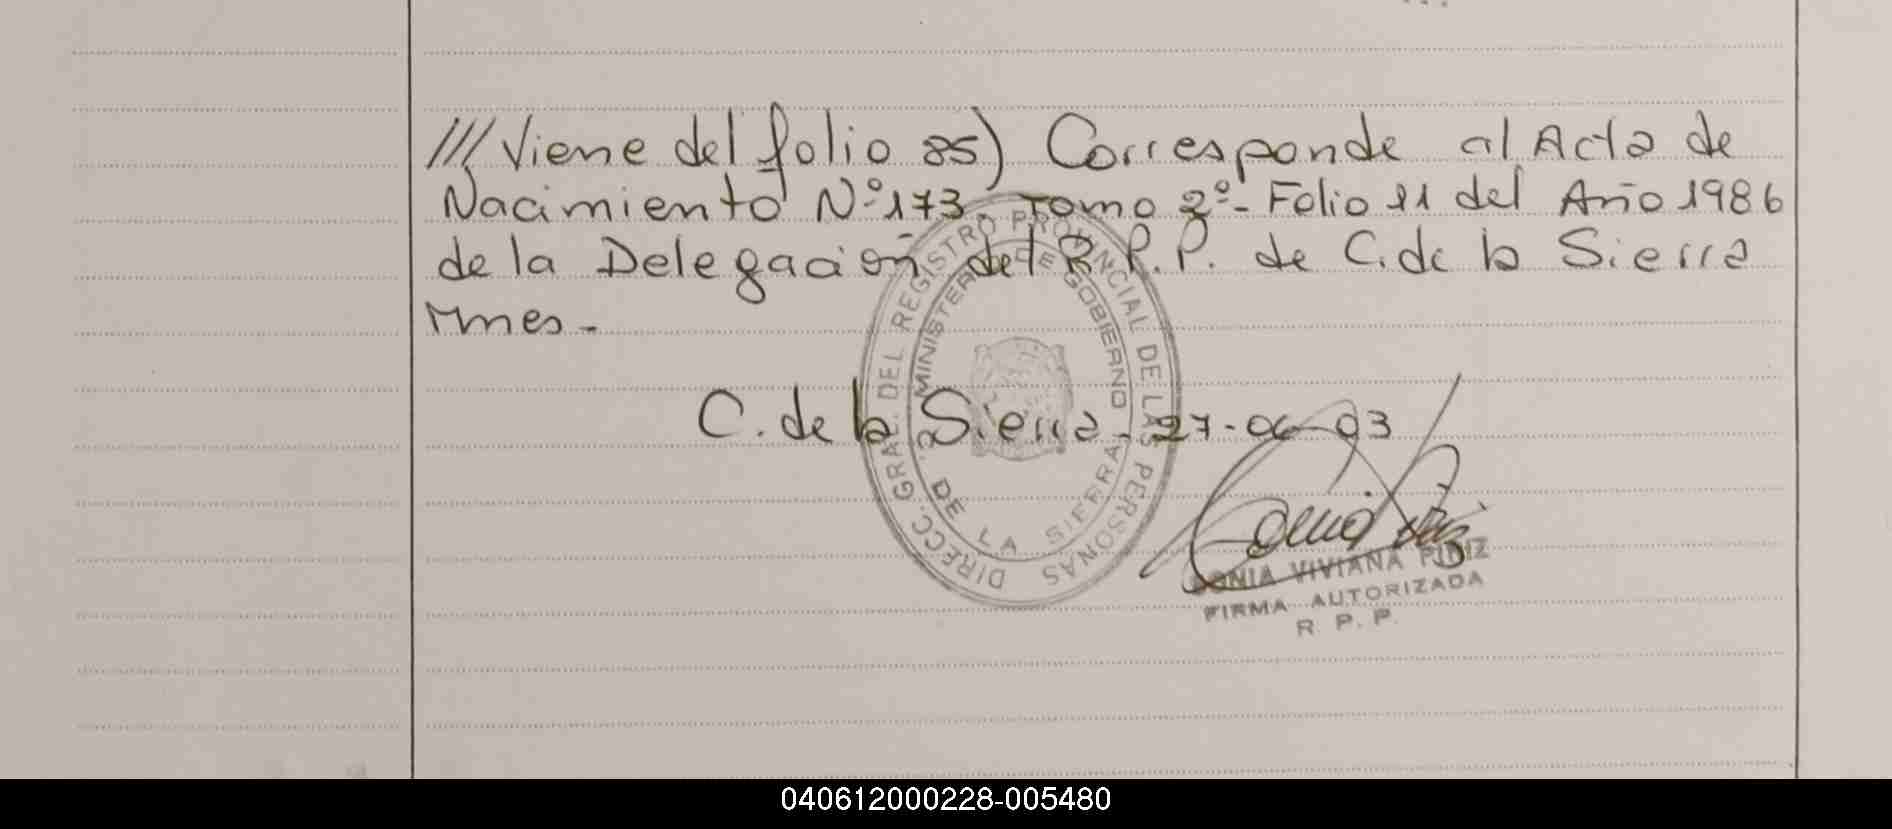 ///Viene del folio 85) Corresponde al Acta de
Nacimiento Nº 173. Tomo 2º- Folio 11 del Año 1986
de la Delegación del R.P.P. de C. de la Sierra
Mnes.-
C. de la Sierra- 27-06-03
DIRECC. GRAL. DEL REGISTRO PROVINCIAL DE LAS PERSONAS
MINISTERIO DE GOBIERNO
DE LA SIERRA
SONIA VIVIANA
FIRMA AUTORIZADA
R. P. P.
040612000228-005480